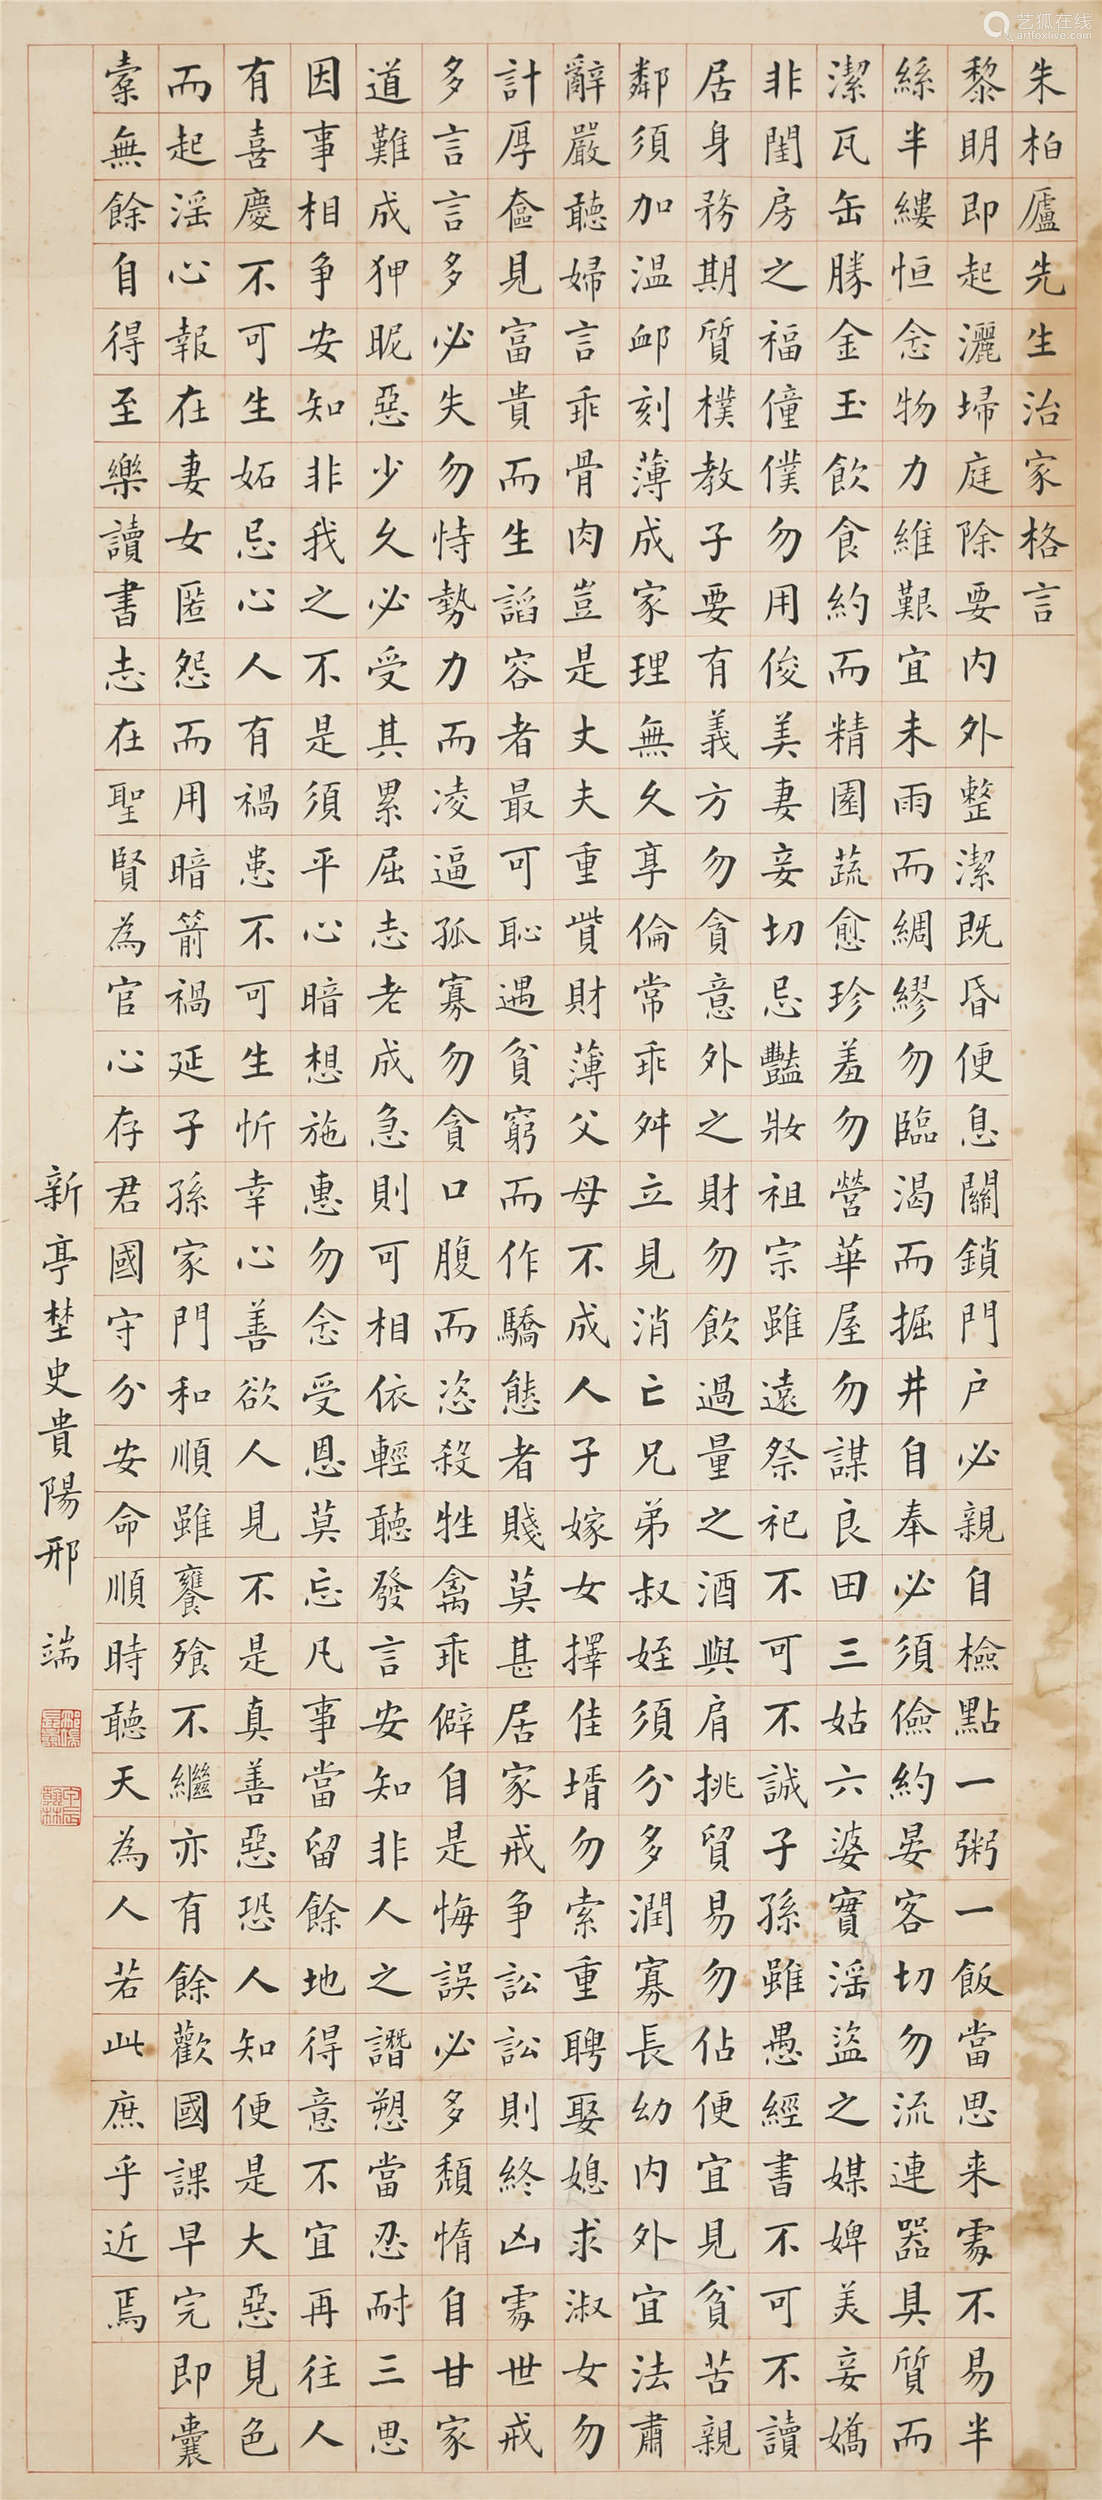 朱柏廬先生治家格言
黎明即起灑埽庭除要内外整潔既昏便息關鎖門户必親自檢點一粥一飯當思来處不易半
絲半縷恒念物力維艱宜未雨而綢繆勿臨渴而掘井自奉必須儉約晏客切勿流連器具質而
潔瓦缶勝金玉飲食約而精園蔬愈珍羞勿營華屋勿謀良田三姑六婆實淫盜之媒婢美妾嬌
非閨房之福僮僕勿用俊美妻妾切忌豔妝祖宗雖遠祭祀不可不誠子孫雖愚經書不可不讀
居身務期質樸教子要有義方勿貪意外之財勿飲過量之酒與肩挑貿易勿佔便宜見貧苦親
鄰須加温卹刻薄成家理無久享倫常乖舛立見消亡兄弟叔姪須分多潤寡長幼内外宜法肅
辭嚴聽婦言乖骨肉豈是丈夫重貲財薄父母不成人子嫁女擇佳壻勿索重聘娶媳求淑女勿
計厚奩見富貴而生諂容者最可恥遇貧窮而作驕態者賤莫甚居家戒争訟訟則終凶處世戒
多言言多必失勿恃勢力而凌逼孤寡勿貪口腹而恣殺牲禽乖僻自是悔誤必多頹惰自甘家
道難成狎昵惡少久必受其累屈志老成急則可相依輕聽發言安知非人之譖愬當忍耐三思
因事相争安知非我之不是須平心暗想施惠勿念受恩莫忘凡事當留餘地得意不宜再往人
有喜慶不可生妬忌心人有禍患不可生忻幸心善欲人見不是真善惡恐人知便是大惡見色
而起淫心報在妻女匿怨而用暗箭禍延子孫家門和順雖饔飱不繼亦有餘歡國課早完即囊
橐無餘自得至樂讀書志在聖賢為官心存君國守分安命順時聽天為人若此庶乎近焉
新亭埜史貴陽邢端
甲辰翰林
艺狐在线
artfoxlive.com